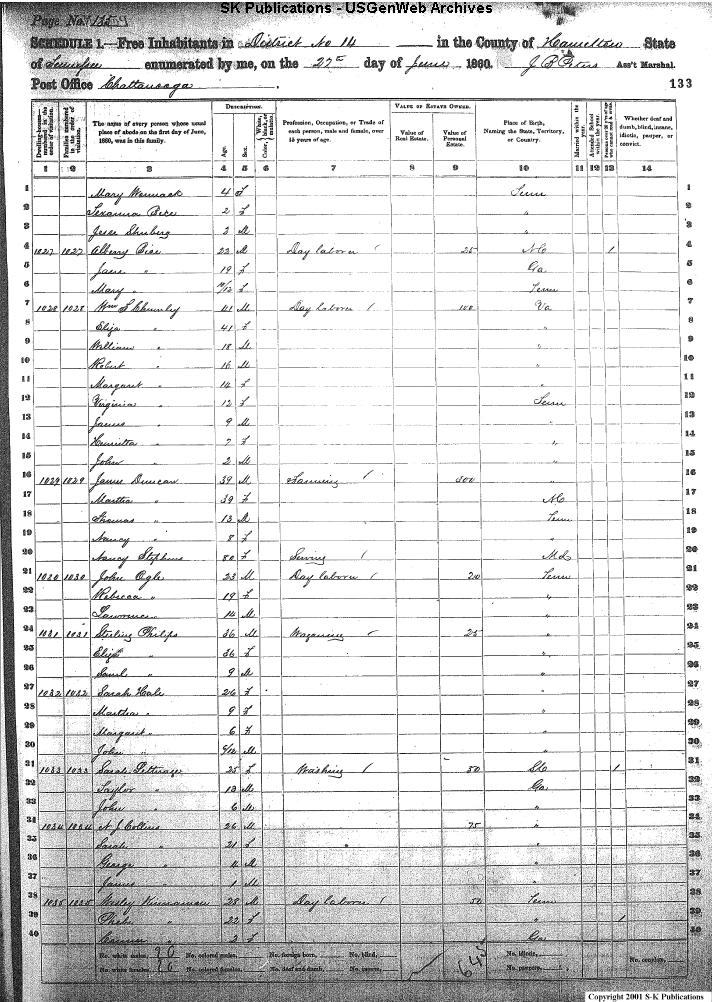 SK Publications - USGenWeb Archives
Page No. 133
SCHEDULE 1.—Free Inhabitants in District No 14 in the County of Hamilton State
of Tennessee enumerated by me, on the 27th day of June 1860. Ass't Marshal.
Post Office Chattanooga 133
DESCRIPTION. VALUE OF ESTATE OWNED.
Dwelling-houses— numbered in the order of visitation. Families numbered in the order of visitation. The name of every person whose usual place of abode on the first day of June, 1860, was in this family. Age. Sex. Color, White, black, or mulatto. Profession, Occupation, or Trade of each person, male and female, over 15 years of age. Value of Real Estate. Value of Personal Estate. Place of Birth, Naming the State, Territory, or Country. Married within the year. Attended School within the year. Persons over 20 y'rs of age who cannot read & write. Whether deaf and dumb, blind, insane, idiotic, pauper, or convict.
1 2 3 4 5 6 7 8 9 10 11 12 13 14
1 Mary Wommack 4 f Tenn 1
2 2 f " 2
3 Jesse 2 M " 3
4 1027 1027 Albery Bice 22 M Day laborer 25 NC 1 4
5 Jane " 19 f Ga 5
6 Mary " f Tenn 6
7 1028 1028 Wm S Chumly 41 M Day laborer 100 Va 7
8 Eliza " 41 f " 8
9 William " 18 M " 9
10 Robert " 16 M " 10
11 Margaret " 14 f " 11
12 Virginia " 12 f Tenn 12
13 James " 9 M " 13
14 Henrietta " 7 f " 14
15 John " 2 M " 15
16 1029 1029 James Duncan 39 M Farming 300 " 16
17 Martha " 39 f NC 17
18 Thomas " 13 M Tenn 18
19 Nancy " 8 f " 19
20 Nancy Stephens 80 f Sewing Md 20
21 1030 1030 John Ogle 23 M Day laborer 20 Tenn 21
22 Rebecca " 19 f " 22
23 Lawrence " 14 M " 23
24 1031 1031 Sterling Philips 36 M Wagoning 25 " 24
25 Eliza " 36 f " 25
26 Saml " 9 M " 26
27 1032 1032 Sarah Hale 26 f " 27
28 Martha " 9 f " 28
29 Margaret " 6 f " 29
30 John " M " 30
31 1033 1033 Sarah 25 f Washing 50 SC 1 31
32 Taylor " 13 M Ga 32
33 John " 6 M " 33
34 1034 1034 N J Collins 26 M 75 " 34
35 Sarah " 21 f " 35
36 George " 4 M " 36
37 James " 1 M " 37
38 1035 1035 Wesley Kinnaman 28 M Day laborer 50 Tenn 38
39 " 22 f " 1 39
40 " 2 f Ga 40
No. white males, No. colored males, No. foreign born, No. blind, 645 No. idiotic, No. convicts,
No. white females, No. colored females, No. deaf and dumb, No. insane, No. paupers,
Copyright 2001 S-K Publications